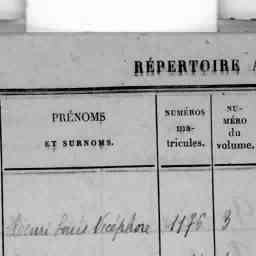 RÉPERTOIRE A
PRÉNOMS
ET SURNOMS.
NUMÉROS
ma-
tricules.
NU-
MÉRO
du
volume.
Henri Louis Nicéphore 1176 3